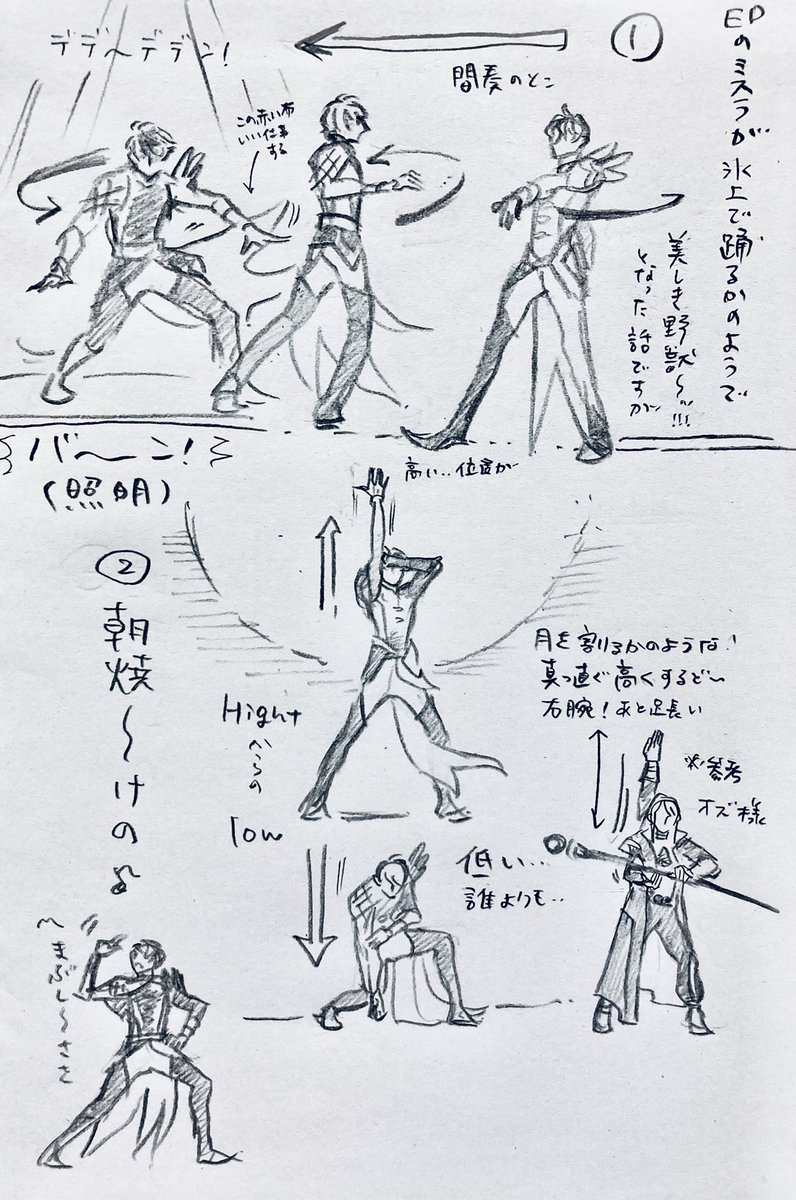 EDのミスラが氷上で踊るかのようで
美しき野獣〜!!!
となった話ですが
①
間奏のとこ
デデ〜デデン!
この赤い布
いい仕事
する
バーン!
(照明)
②
朝焼〜けの♪
高い‥位置が
Hight
からの
low
月を割るかのような!
真っ直ぐ高くするど〜
右腕!あと足長い
※参考
オズ様
低い…
誰よりも‥
〜まぶし〜ささ